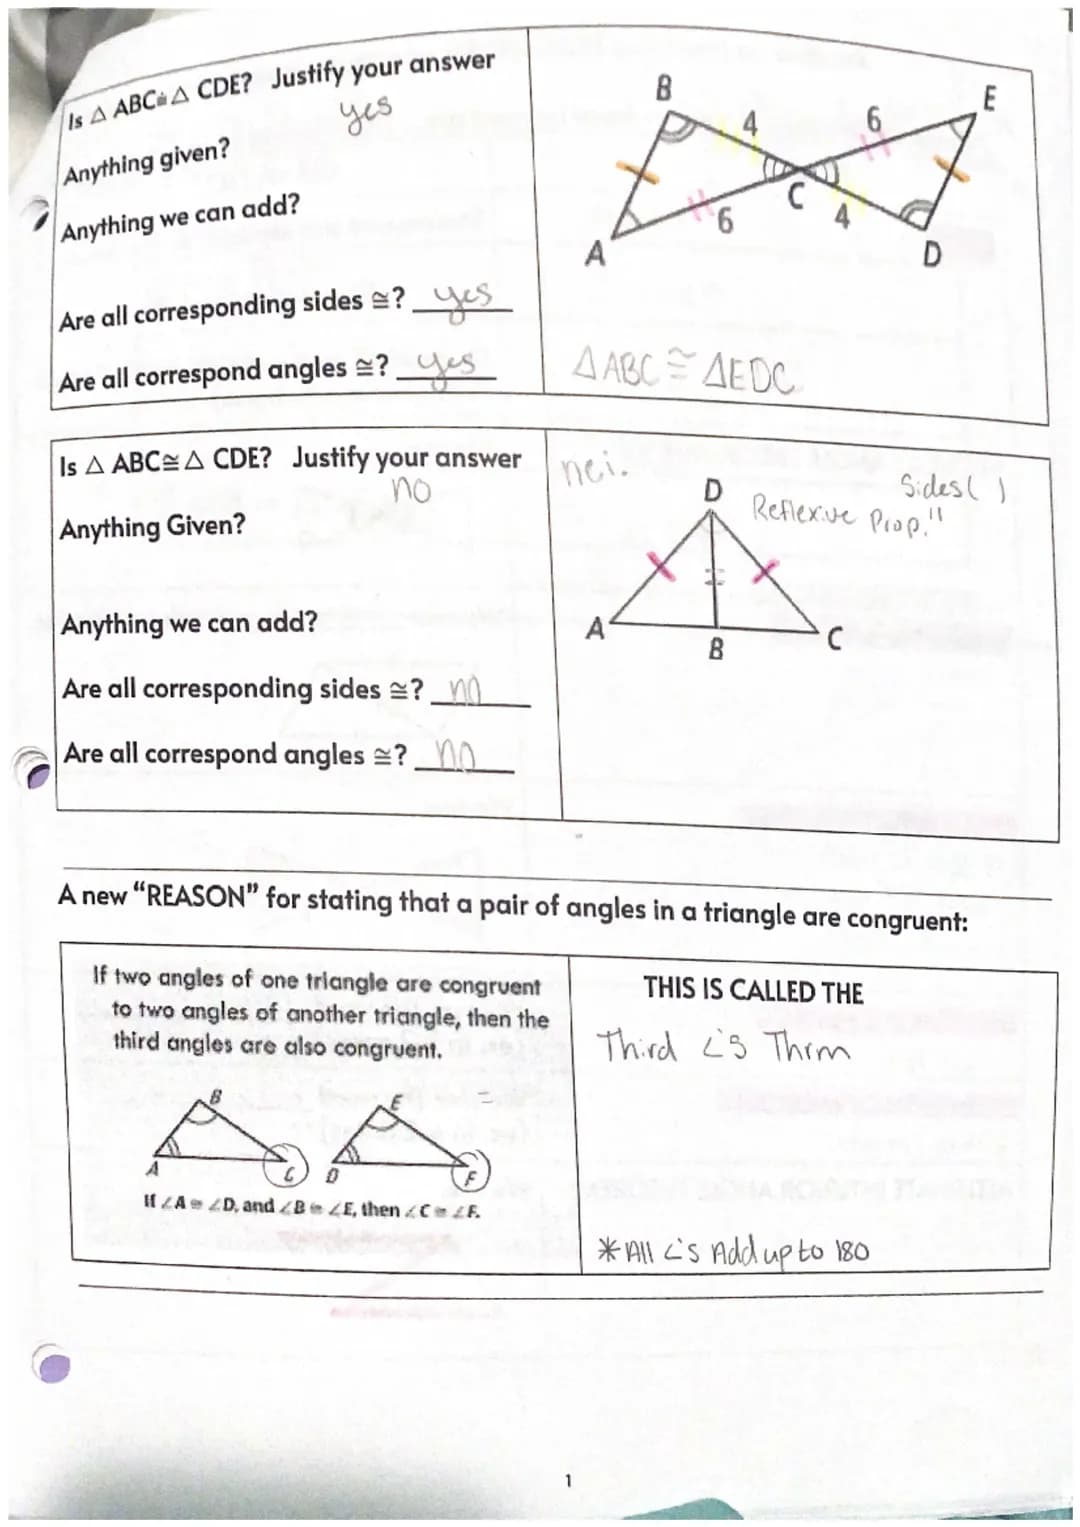 Is △ ABC≅△ CDE? Justify your answer
yes
Anything given?
Anything we can add?
Are all corresponding sides ≅? yes
Are all correspond angles ≅? yes
B
4
6
E
A
6
C
4
D
△ABC ≅ △EDC
Is △ ABC≅△ CDE? Justify your answer
no
Anything Given?
Anything we can add?
Are all corresponding sides ≅? no
Are all correspond angles ≅? no
nei.
Sides( )
D
Reflexive Prop."
A
B
C
A new “REASON” for stating that a pair of angles in a triangle are congruent:
If two angles of one triangle are congruent
to two angles of another triangle, then the
third angles are also congruent.
B
E
=
A
C
D
F
If ∠A ≅ ∠D, and ∠B ≅ ∠E, then ∠C ≅ ∠F.
THIS IS CALLED THE
Third ∠'s Thrm
* All ∠'s Add up to 180
1